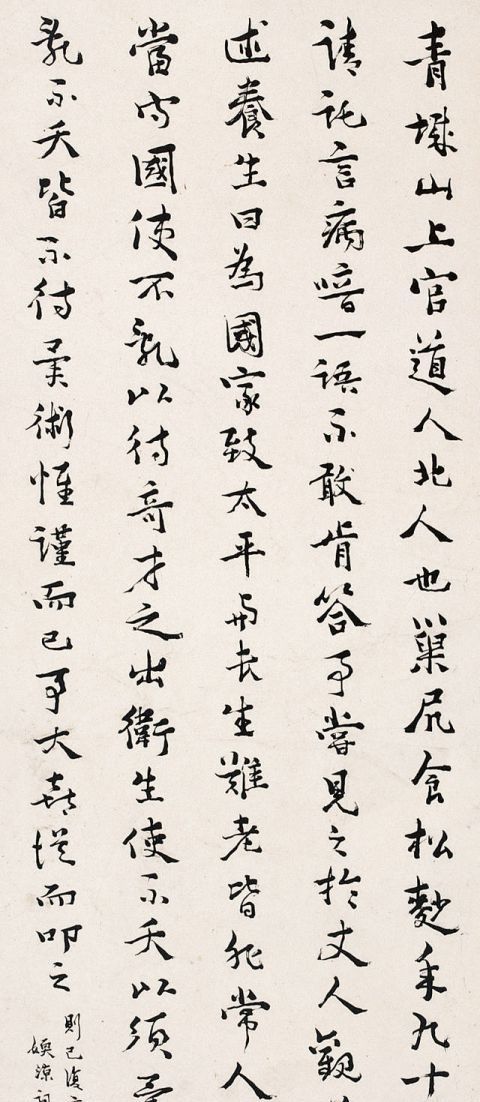 青城山上官道人北人也巢凥食松麨年九十
請託言病喑一語不敢肯答予嘗見之於丈人觀
述養生曰為國家致太平與長生難老皆非常人
當守國使不亂以待奇才之出衛生使不夭以須異
亂不夭皆不待異術惟謹而已予大喜從而叩之
則已復